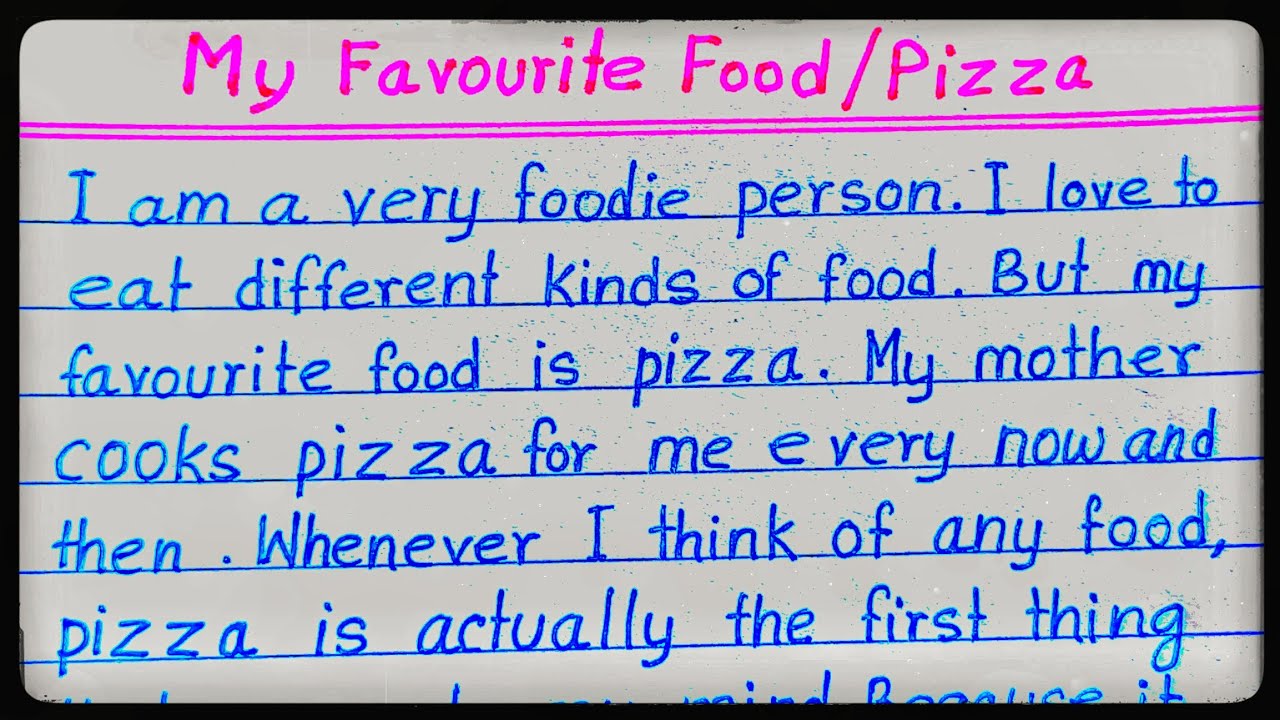 My Favourite Food/Pizza
I am a very foodie person. I love to
eat different kinds of food. But my
favourite food is pizza. My mother
cooks pizza for me every now and
then. Whenever I think of any food,
pizza is actually the first thing
mind Because it